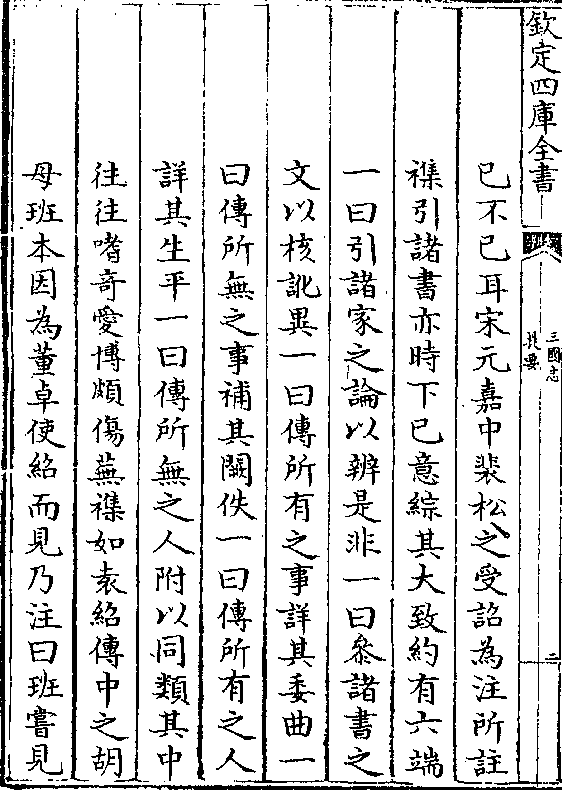 欽定四庫全書
三國志
提要
二
已不已耳宋元嘉中裴松之受詔為注所註
襍引諸書亦時下已意綜其大致約有六端
一曰引諸家之論以辨是非一曰叅諸書之
文以核訛異一曰傳所有之事詳其委曲一
曰傳所無之事補其闕佚一曰傳所有之人
詳其生平一曰傳所無之人附以同類其中
往往嗜竒愛博頗傷蕪襍如袁紹傳中之胡
母班本因為董卓使紹而見乃注曰班嘗見